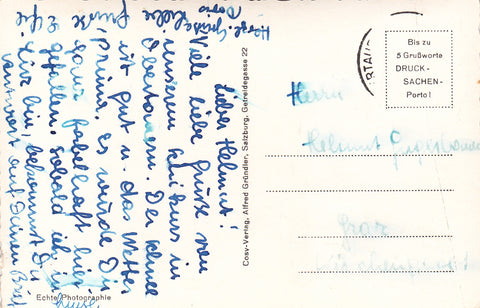 Lieber Helmut!
Viele liebe Grüße von
unserem Skikurs in
Obertauern. Der Schnee
ist gut u. das Wetter
prima. Es würde Dir
ganz fabelhaft hier
gefallen. Sobald ich in
bin, bekommst Du
antwort auf Deinen Brief
Herzl. Grüße
Doris
Echte Photographie
Cosy-Verlag, Alfred Gründler, Salzburg, Getreidegasse 22
Bis zu
5 Grußworte
DRUCK-
SACHEN-
Porto!
RTAU
Herrn
Helmut
Graz